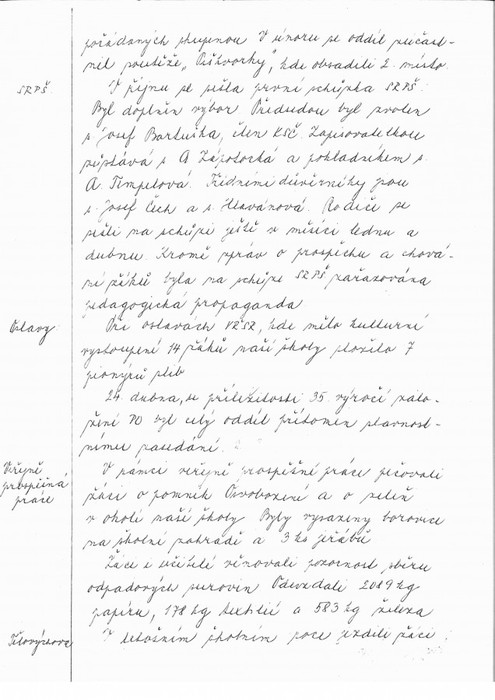 pořádaných skupinou V únoru se oddíl zúčast-
nil soutěže „Piškvorky", kde obsadili 2. místo.
SRPŠ
V říjnu se sešla první schůzka SRPŠ.
Byl doplněn výbor Předsedou byl zvolen
s. Josef Bartuška, člen KSČ. Zapisovatelkou
zůstává s A Zápotocká a pokladníkem s.
A. Timpelová. Třídními důvěrníky jsou
s. Josef Čech a s. Hlavánová. Rodiče se
sešli na schůzi ještě v měsíci lednu a
dubnu. Kromě zpráv o prospěchu a chová-
ní žáků byla na schůze SRPŠ zařazována
pedagogická propaganda
Oslavy:
Při oslavách VŘSR, kde mělo kulturní
vystoupení 14 žáků naší školy složilo 7
pionýrů slib
24. dubna, u příležitosti 35. výročí zalo-
žení PO byl celý oddíl přítomen slavnost-
nímu zasedání.
Veřejně
prospěšná
práce
V rámci veřejně prospěšné práce pečovali
žáci o pomník Osvobození a o zeleň
v okolí naší školy Byly vysazeny borovice
na školní zahradě a 3 ks jeřábů
Žáci i učitelé věnovali pozornost sběru
odpadových surovin Odevzdali 2019 kg
papíru, 178 kg textilií a 583 kg železa
Tělovýchova
V letošním školním roce jezdili žáci